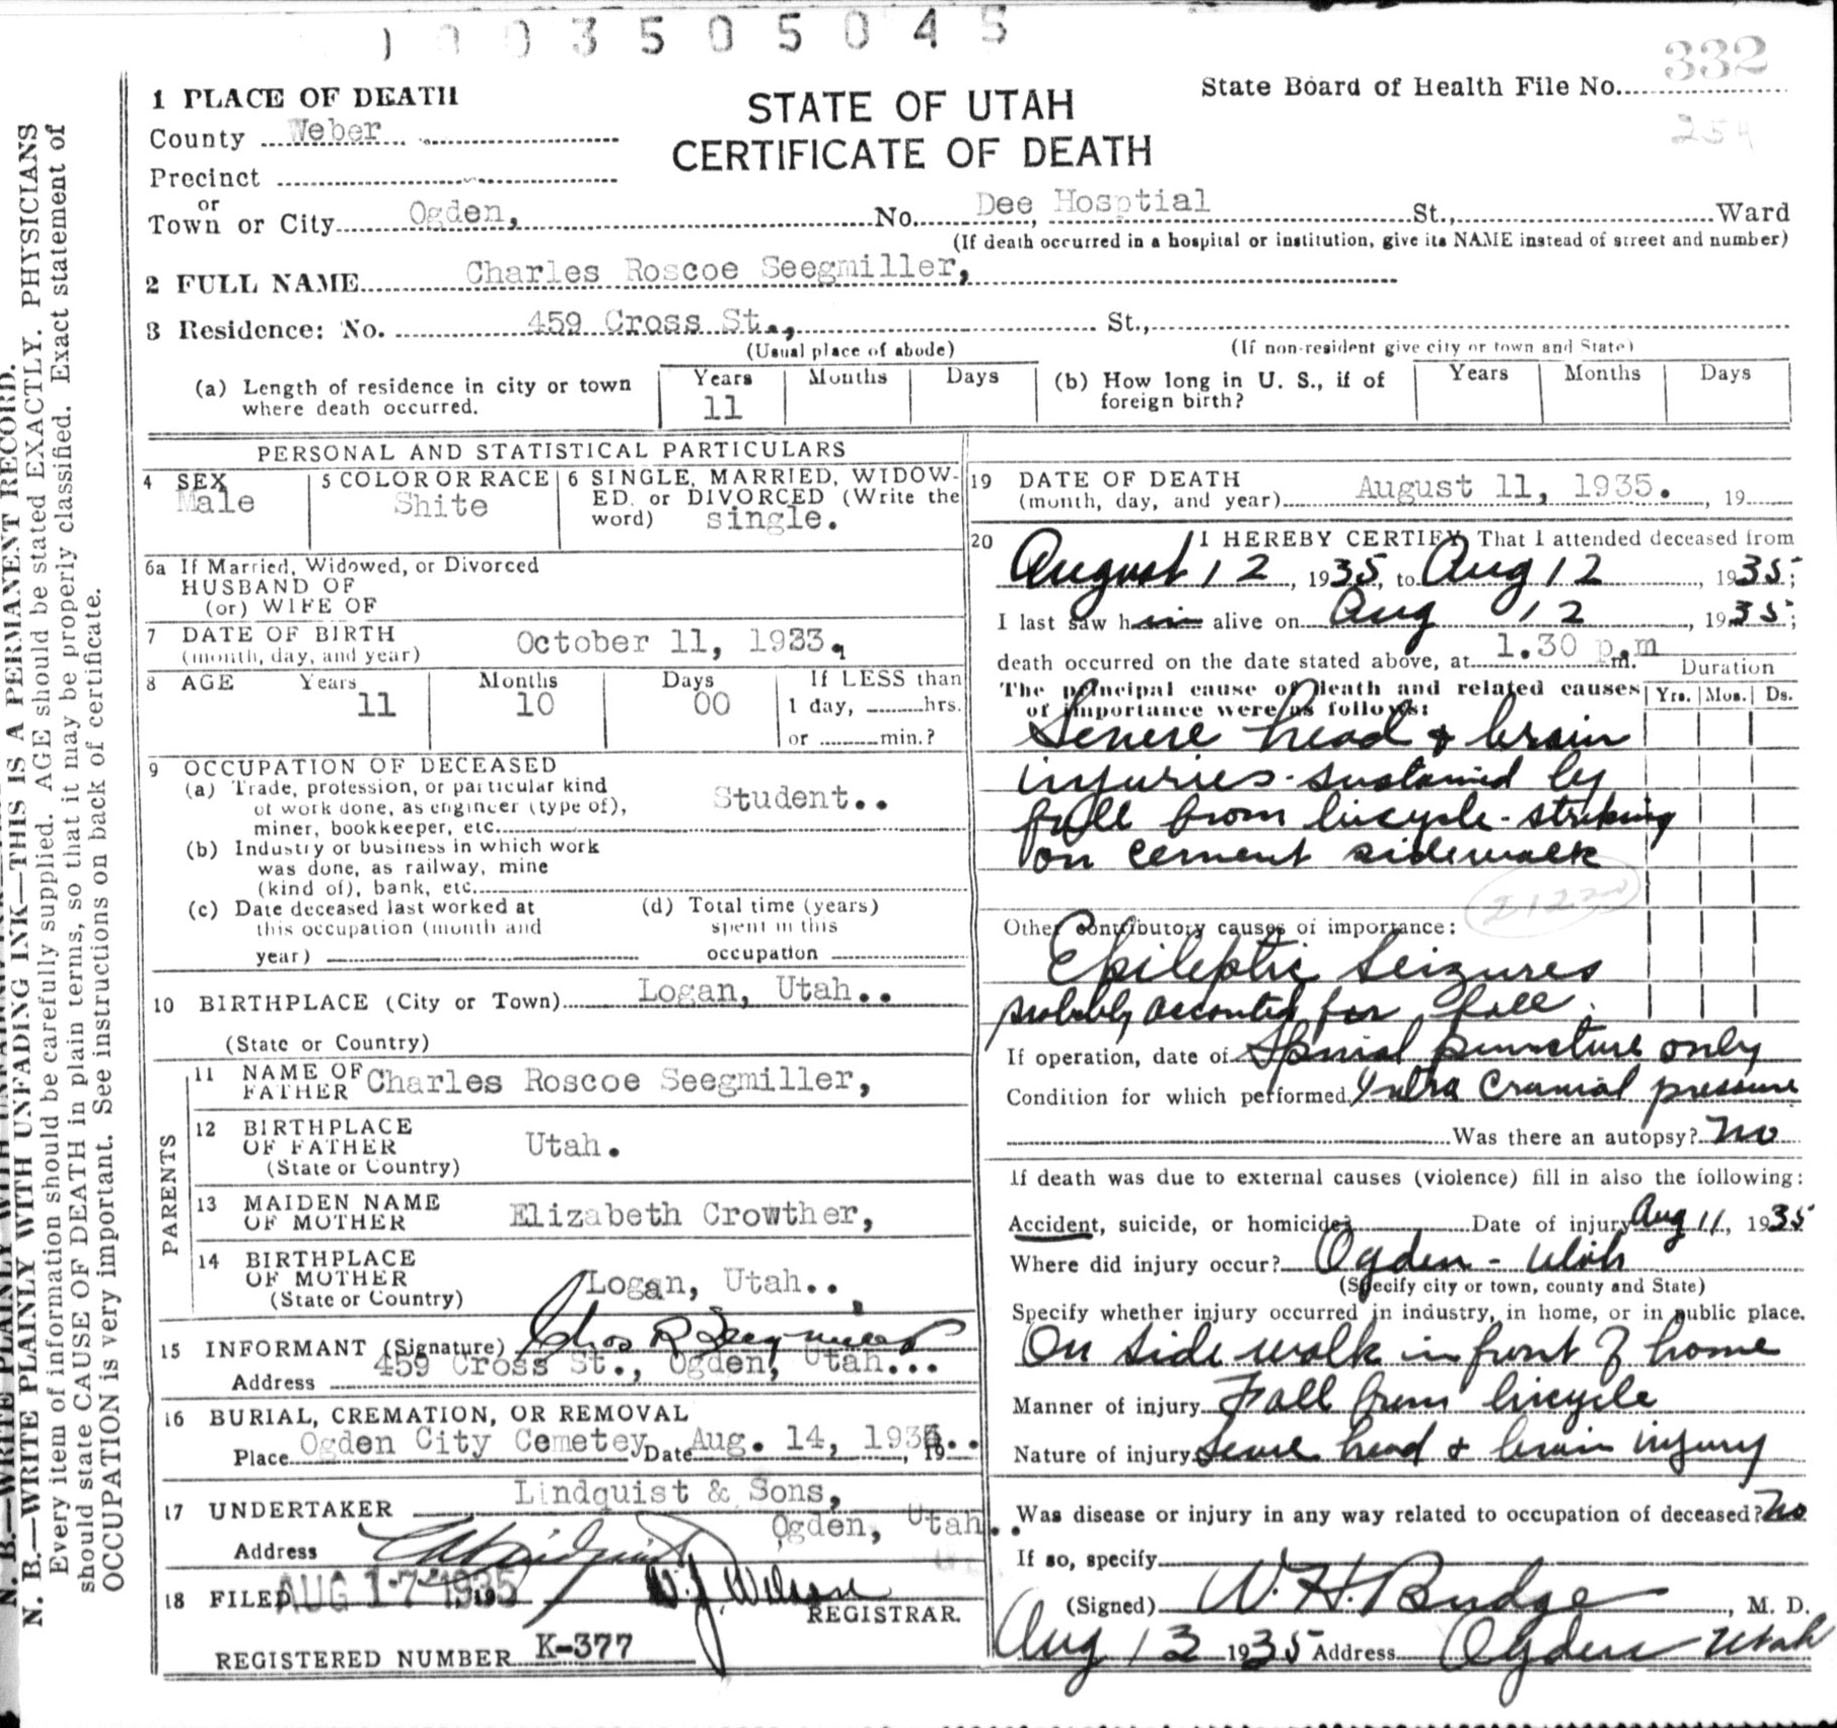 1 0 0 3 5 0 5 0 4 5
332
State Board of Health File No.
254
1 PLACE OF DEATH
STATE OF UTAH
CERTIFICATE OF DEATH
County Weber
Precinct
or
Town or City Ogden, No. Dee Hosptial St., Ward
(If death occurred in a hospital or institution, give its NAME instead of street and number)
2 FULL NAME Charles Roscoe Seegmiller,
3 Residence: No. 459 Cross St., St.,
(Usual place of abode) (If non-resident give city or town and State)
(a) Length of residence in city or town where death occurred. Years 11 Months Days
(b) How long in U. S., if of foreign birth? Years Months Days
PERSONAL AND STATISTICAL PARTICULARS
4 SEX Male
5 COLOR OR RACE Shite
6 SINGLE, MARRIED, WIDOW-
ED, or DIVORCED (Write the
word) single.
6a If Married, Widowed, or Divorced
HUSBAND OF
(or) WIFE OF
7 DATE OF BIRTH October 11, 1923.
(month, day, and year)
8 AGE Years Months Days If LESS than
11 10 00 1 day, hrs.
or min.?
9 OCCUPATION OF DECEASED
(a) Trade, profession, or particular kind
of work done, as engineer (type of),
miner, bookkeeper, etc. Student..
(b) Industry or business in which work
was done, as railway, mine
(kind of), bank, etc.
(c) Date deceased last worked at
this occupation (month and
year)
(d) Total time (years)
spent in this
occupation
10 BIRTHPLACE (City or Town) Logan, Utah..
(State or Country)
PARENTS
11 NAME OF
FATHER Charles Roscoe Seegmiller,
12 BIRTHPLACE
OF FATHER Utah.
(State or Country)
13 MAIDEN NAME
OF MOTHER Elizabeth Crowther,
14 BIRTHPLACE
OF MOTHER Logan, Utah..
(State or Country)
15 INFORMANT (Signature) Chas R Seegmiller
Address 459 Cross St., Ogden, Utah...
16 BURIAL, CREMATION, OR REMOVAL
Place Ogden City Cemetey Date Aug. 14, 1935.. , 19
17 UNDERTAKER Lindquist & Sons,
Ogden, Utah..
Address
18 FILED AUG 17 1935 19 W. J. Wilson
REGISTRAR.
REGISTERED NUMBER K-377
19 DATE OF DEATH
(month, day, and year) August 11, 1935. , 19
20 I HEREBY CERTIFY, That I attended deceased from
August 12, 1935, to Aug 12, 1935;
I last saw him alive on Aug 12, 1935;
death occurred on the date stated above, at 1.30 p.m m.
Duration
The principal cause of death and related causes
of importance were as follows:
Yrs. Mos. Ds.
Severe head & brain
injuries - sustained by
fall from bicycle - striking
on cement sidewalk
Other contributory causes of importance:
Epileptic Seizures
probably accounted for fall.
If operation, date of Spinal puncture only
Condition for which performed Intra Cranial pressure
Was there an autopsy? No
If death was due to external causes (violence) fill in also the following:
Accident, suicide, or homicide? Date of injury Aug 11, 1935
Where did injury occur? Ogden - Utah
(Specify city or town, county and State)
Specify whether injury occurred in industry, in home, or in public place.
On side walk in front of home
Manner of injury Fall from bicycle
Nature of injury Severe head & brain injury
Was disease or injury in any way related to occupation of deceased? No
If so, specify
(Signed) W. H. Budge, M. D.
Aug 13 1935 Address Ogden Utah
N. B.—WRITE PLAINLY WITH UNFADING INK—THIS IS A PERMANENT RECORD.
Every item of information should be carefully supplied. AGE should be stated EXACTLY. PHYSICIANS
should state CAUSE OF DEATH in plain terms, so that it may be properly classified. Exact statement of
OCCUPATION is very important. See instructions on back of certificate.